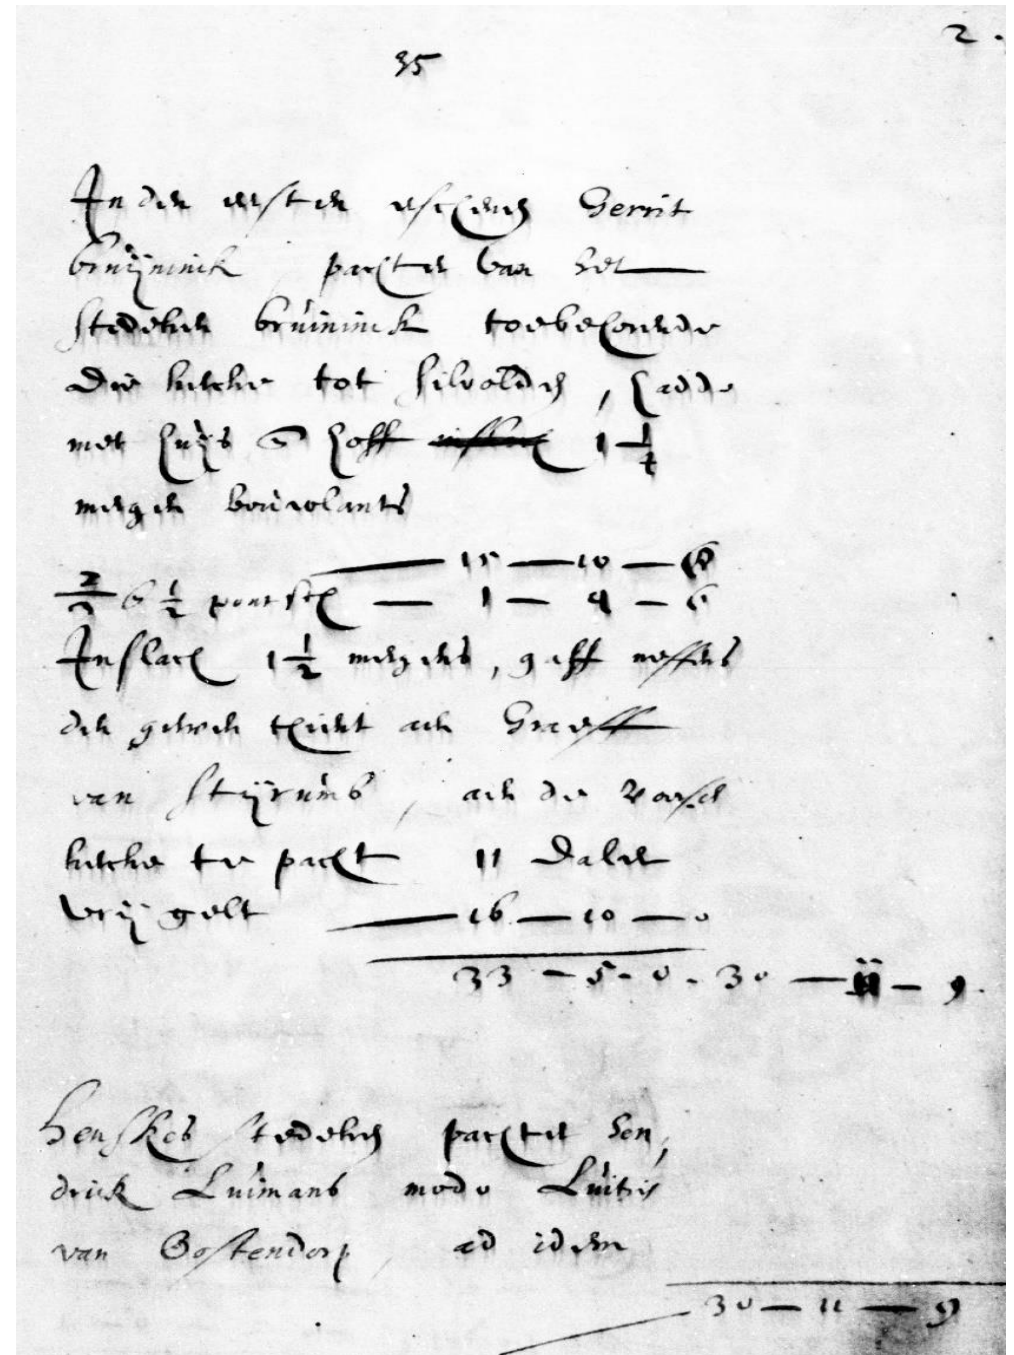 2.
35
In den eersten eschene Gerrit
bruijninck, pachter van het
stedeken bruininck toebehorende
die kercke tot Silvolden, hadde
met huijs en hoff 1 1/4
mergen bouwlants
— 15 — 10 — 0
6 1/2 — 1 — 4 — 6
Inslach 1 1/2 mergens, gaff neffens
den thient aen Graeff
van Stijrumb, aen de voersch
kercke te pacht 11 Daler
vrij gelt — 16 — 10 — 0
33 — 5 - 0 - 30 — 11 — 9.
Henskes stedeken pachter Hen,
drick Luimans modo Luitien
van Oostendorp, ad idem
30 — 11 — 9